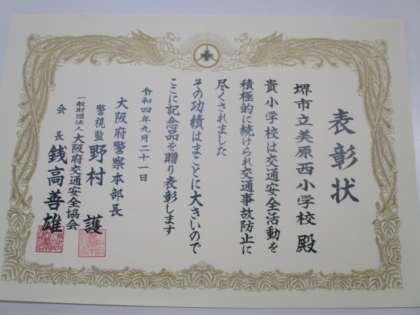 表彰状
堺市立美原西小学校 殿
貴小学校は交通安全活動を
積極的に続けられ交通事故防止に
尽くされました
その功績はまことに大きいので
ここに記念品を贈り表彰します
令和四年九月二十一日
大阪府警察本部長
警視監 野村 護
一般財団法人大阪府交通安全協会
会長 銭高善雄